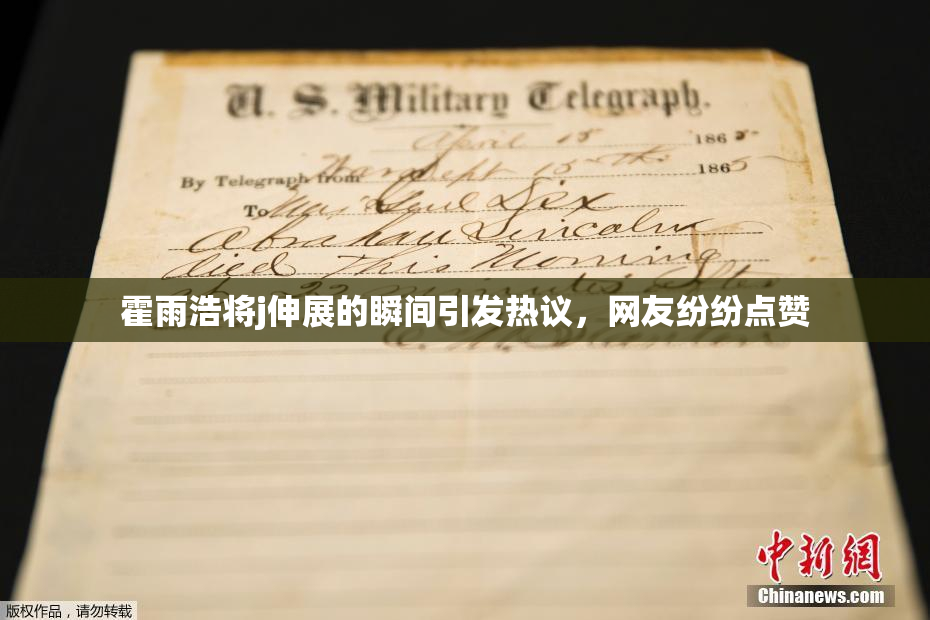 U. S. Military Telegraph.
April 15 1865
By Telegraph from War Dept 15th 1865
To Maj Genl Dix
Abraham Lincoln
died This Morning
at 22 minutes after
霍雨浩将j伸展的瞬间引发热议，网友纷纷点赞
E. M. Stanton
中新网
Chinanews.com
版权作品，请勿转载